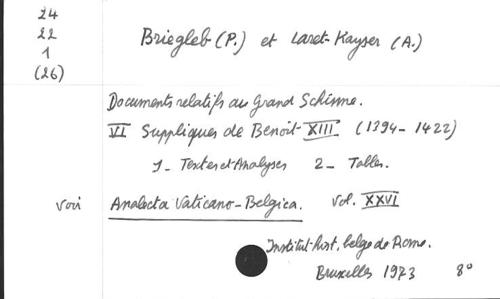 24
22
1
(26)
Briegleb (P.) et Laret-Kayser (A.)
Documents relatifs au Grand Schisme.
VI Suppliques de Benoît XIII (1394-1422)
1- Textes et Analyses 2- Tables.
voir Analecta Vaticano-Belgica. Vol. XXVI
Institut hist. belge de Rome.
Bruxelles 1973 8°